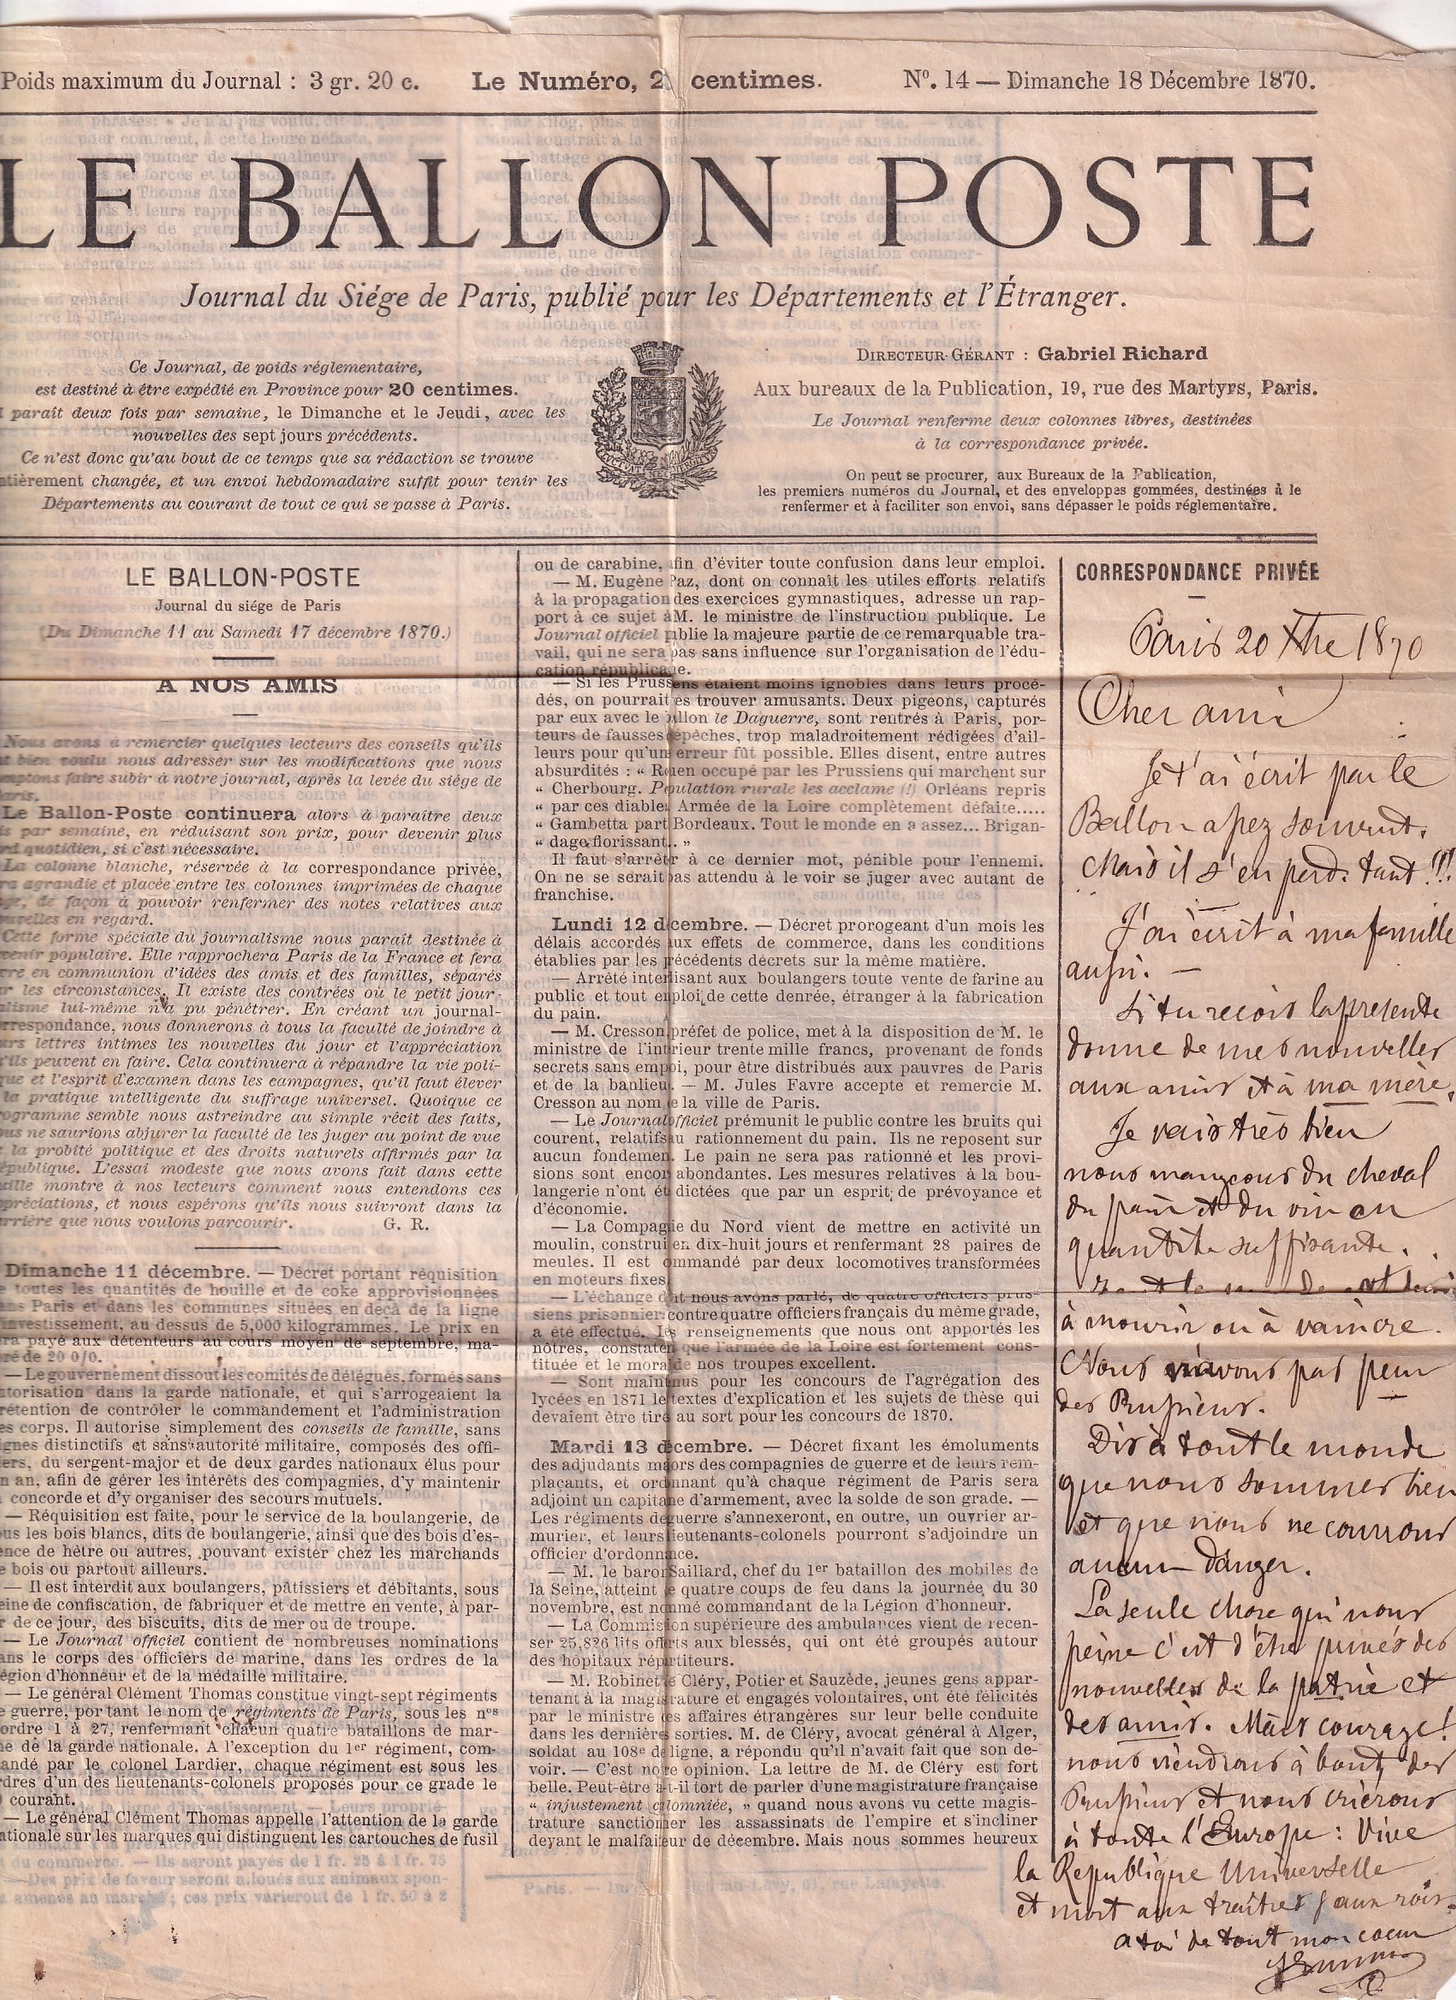 Poids maximum du Journal : 3 gr. 20 c. Le Numéro, 2 centimes. Nº. 14 — Dimanche 18 Décembre 1870.
LE BALLON POSTE
Journal du Siége de Paris, publié pour les Départements et l'Étranger.
Ce Journal, de poids réglementaire,
est destiné à être expédié en Province pour 20 centimes.
paraît deux fois par semaine, le Dimanche et le Jeudi, avec les
nouvelles des sept jours précédents.
Ce n'est donc qu'au bout de ce temps que sa rédaction se trouve
tièrement changée, et un envoi hebdomadaire suffit pour tenir les
Départements au courant de tout ce qui se passe à Paris.
DIRECTEUR-GÉRANT : Gabriel Richard
Aux bureaux de la Publication, 19, rue des Martyrs, Paris.
Le Journal renferme deux colonnes libres, destinées
à la correspondance privée.
On peut se procurer, aux Bureaux de la Publication,
les premiers numéros du Journal, et des enveloppes gommées, destinées à le
renfermer et à faciliter son envoi, sans dépasser le poids réglementaire.
LE BALLON-POSTE
Journal du siége de Paris
(Du Dimanche 11 au Samedi 17 décembre 1870.)
A NOS AMIS
Nous avons à remercier quelques lecteurs des conseils qu'ils
bien voulu nous adresser sur les modifications que nous
mptons faire subir à notre journal, après la levée du siége de
aris.
Le Ballon-Poste continuera alors à paraître deux
is par semaine, en réduisant son prix, pour devenir plus
rd quotidien, si c'est nécessaire.
La colonne blanche, réservée à la correspondance privée,
ra agrandie et placée entre les colonnes imprimées de chaque
ge, de façon à pouvoir renfermer des notes relatives aux
uvelles en regard.
Cette forme spéciale du journalisme nous paraît destinée à
venir populaire. Elle rapprochera Paris de la France et fera
re en communion d'idées des amis et des familles, séparés
r les circonstances. Il existe des contrées où le petit jour-
lisme lui-même n'a pu pénétrer. En créant un journal-
rrespondance, nous donnerons à tous la faculté de joindre à
urs lettres intimes les nouvelles du jour et l'appréciation
'ils peuvent en faire. Cela continuera à répandre la vie poli-
que et l'esprit d'examen dans les campagnes, qu'il faut élever
la pratique intelligente du suffrage universel. Quoique ce
ogramme semble nous astreindre au simple récit des faits,
us ne saurions abjurer la faculté de les juger au point de vue
la probité politique et des droits naturels affirmés par la
épublique. L'essai modeste que nous avons fait dans cette
uille montre à nos lecteurs comment nous entendons ces
préciations, et nous espérons qu'ils nous suivront dans la
rrière que nous voulons parcourir. G. R.
Dimanche 11 décembre. — Décret portant réquisition
e toutes les quantités de houille et de coke approvisionnées
ans Paris et dans les communes situées en deçà de la ligne
investissement, au dessus de 5,000 kilogrammes. Le prix en
ra payé aux détenteurs au cours moyen de septembre, ma-
ré de 20 0/0.
— Le gouvernement dissout les comités de délégués, formés sans
torisation dans la garde nationale, et qui s'arrogeaient la
rétention de contrôler le commandement et l'administration
es corps. Il autorise simplement des conseils de famille, sans
ignes distinctifs et sans autorité militaire, composés des offi-
iers, du sergent-major et de deux gardes nationaux élus pour
n an, afin de gérer les intérêts des compagnies, d'y maintenir
concorde et d'y organiser des secours mutuels.
— Réquisition est faite, pour le service de la boulangerie, de
us les bois blancs, dits de boulangerie, ainsi que des bois d'es-
ence de hêtre ou autres, pouvant exister chez les marchands
e bois ou partout ailleurs.
— Il est interdit aux boulangers, pâtissiers et débitants, sous
eine de confiscation, de fabriquer et de mettre en vente, à par-
r de ce jour, des biscuits, dits de mer ou de troupe.
— Le Journal officiel contient de nombreuses nominations
ans le corps des officiers de marine, dans les ordres de la
égion d'honneur et de la médaille militaire.
— Le général Clément Thomas constitue vingt-sept régiments
e guerre, portant le nom de régiments de Paris, sous les nos
ordre 1 à 27, renfermant chacun quatre bataillons de mar-
e de la garde nationale. A l'exception du 1er régiment, com-
andé par le colonel Lardier, chaque régiment est sous les
rdres d'un des lieutenants-colonels proposés pour ce grade le
courant.
— Le général Clément Thomas appelle l'attention de la garde
ationale sur les marques qui distinguent les cartouches de fusil
ou de carabine, afin d'éviter toute confusion dans leur emploi.
— M. Eugène Paz, dont on connaît les utiles efforts relatifs
à la propagation des exercices gymnastiques, adresse un rap-
port à ce sujet à M. le ministre de l'instruction publique. Le
Journal officiel publie la majeure partie de ce remarquable tra-
vail, qui ne sera pas sans influence sur l'organisation de l'édu-
cation républicaine.
— Si les Prussiens étaient moins ignobles dans leurs procé-
dés, on pourrait les trouver amusants. Deux pigeons, capturés
par eux avec le ballon le Daguerre, sont rentrés à Paris, por-
teurs de fausses dépêches, trop maladroitement rédigées d'ail-
leurs pour qu'une erreur fût possible. Elles disent, entre autres
absurdités : “ Rouen occupé par les Prussiens qui marchent sur
“ Cherbourg. Population rurale les acclame (!) Orléans repris
“ par ces diables. Armée de la Loire complètement défaite.....
“ Gambetta parti Bordeaux. Tout le monde en a assez... Brigan-
“ dage florissant.. ”
Il faut s'arrêter à ce dernier mot, pénible pour l'ennemi.
On ne se serait pas attendu à le voir se juger avec autant de
franchise.
Lundi 12 décembre. — Décret prorogeant d'un mois les
délais accordés aux effets de commerce, dans les conditions
établies par les précédents décrets sur la même matière.
— Arrêté interdisant aux boulangers toute vente de farine au
public et tout emploi de cette denrée, étranger à la fabrication
du pain.
— M. Cresson, préfet de police, met à la disposition de M. le
ministre de l'intérieur trente mille francs, provenant de fonds
secrets sans emploi, pour être distribués aux pauvres de Paris
et de la banlieue. — M. Jules Favre accepte et remercie M.
Cresson au nom de la ville de Paris.
— Le Journal officiel prémunit le public contre les bruits qui
courent, relatifs au rationnement du pain. Ils ne reposent sur
aucun fondement. Le pain ne sera pas rationné et les provi-
sions sont encore abondantes. Les mesures relatives à la bou-
langerie n'ont été dictées que par un esprit de prévoyance et
d'économie.
— La Compagnie du Nord vient de mettre en activité un
moulin, construit en dix-huit jours et renfermant 28 paires de
meules. Il est commandé par deux locomotives transformées
en moteurs fixes.
— L'échange dont nous avons parlé, de quatre officiers prus-
siens prisonniers contre quatre officiers français du même grade,
a été effectué. Les renseignements que nous ont apportés les
nôtres, constatent que l'armée de la Loire est fortement cons-
tituée et le moral de nos troupes excellent.
— Sont maintenus pour les concours de l'agrégation des
lycées en 1871 les textes d'explication et les sujets de thèse qui
devaient être tirés au sort pour les concours de 1870.
Mardi 13 décembre. — Décret fixant les émoluments
des adjudants majors des compagnies de guerre et de leurs rem-
plaçants, et ordonnant qu'à chaque régiment de Paris sera
adjoint un capitaine d'armement, avec la solde de son grade. —
Les régiments de guerre s'annexeront, en outre, un ouvrier ar-
murier, et leurs lieutenants-colonels pourront s'adjoindre un
officier d'ordonnance.
— M. le baron Saillard, chef du 1er bataillon des mobiles de
la Seine, atteint de quatre coups de feu dans la journée du 30
novembre, est nommé commandant de la Légion d'honneur.
— La Commission supérieure des ambulances vient de recen-
ser 25,826 lits offerts aux blessés, qui ont été groupés autour
des hôpitaux répartiteurs.
— M. Robinet de Cléry, Potier et Sauzède, jeunes gens appar-
tenant à la magistrature et engagés volontaires, ont été félicités
par le ministre des affaires étrangères sur leur belle conduite
dans les dernières sorties. M. de Cléry, avocat général à Alger,
soldat au 108e de ligne, a répondu qu'il n'avait fait que son de-
voir. — C'est notre opinion. La lettre de M. de Cléry est fort
belle. Peut-être a-t-il tort de parler d'une magistrature française
“ injustement calomniée, ” quand nous avons vu cette magis-
trature sanctionner les assassinats de l'empire et s'incliner
devant le malfaiteur de décembre. Mais nous sommes heureux
CORRESPONDANCE PRIVÉE
Paris 20 Xbre 1870
Cher ami
Je t'ai écrit par le
Ballon assez souvent.
Mais il s'en perd tant!!!
J'ai écrit à ma famille
aussi. —
Si tu reçois la présente
donne de mes nouvelles
aux amis et à ma mère.
Je vais très bien
nous mangeons du cheval
du pain et du vin en
quantité suffisante.
à mourir ou à vaincre.
Nous n'avons pas peur
des Prussiens.
Dis à tout le monde
que nous sommes bien
et que nous ne courrons
aucun danger.
La seule chose qui nous
peine c'est d'être privés des
nouvelles de la patrie et
des amis. Mais courage!
nous viendrons à bout des
Prussiens et nous crierons
à toute l'Europe : Vive
la République Universelle
et mort aux traîtres & aux rois.
à toi de tout mon coeur